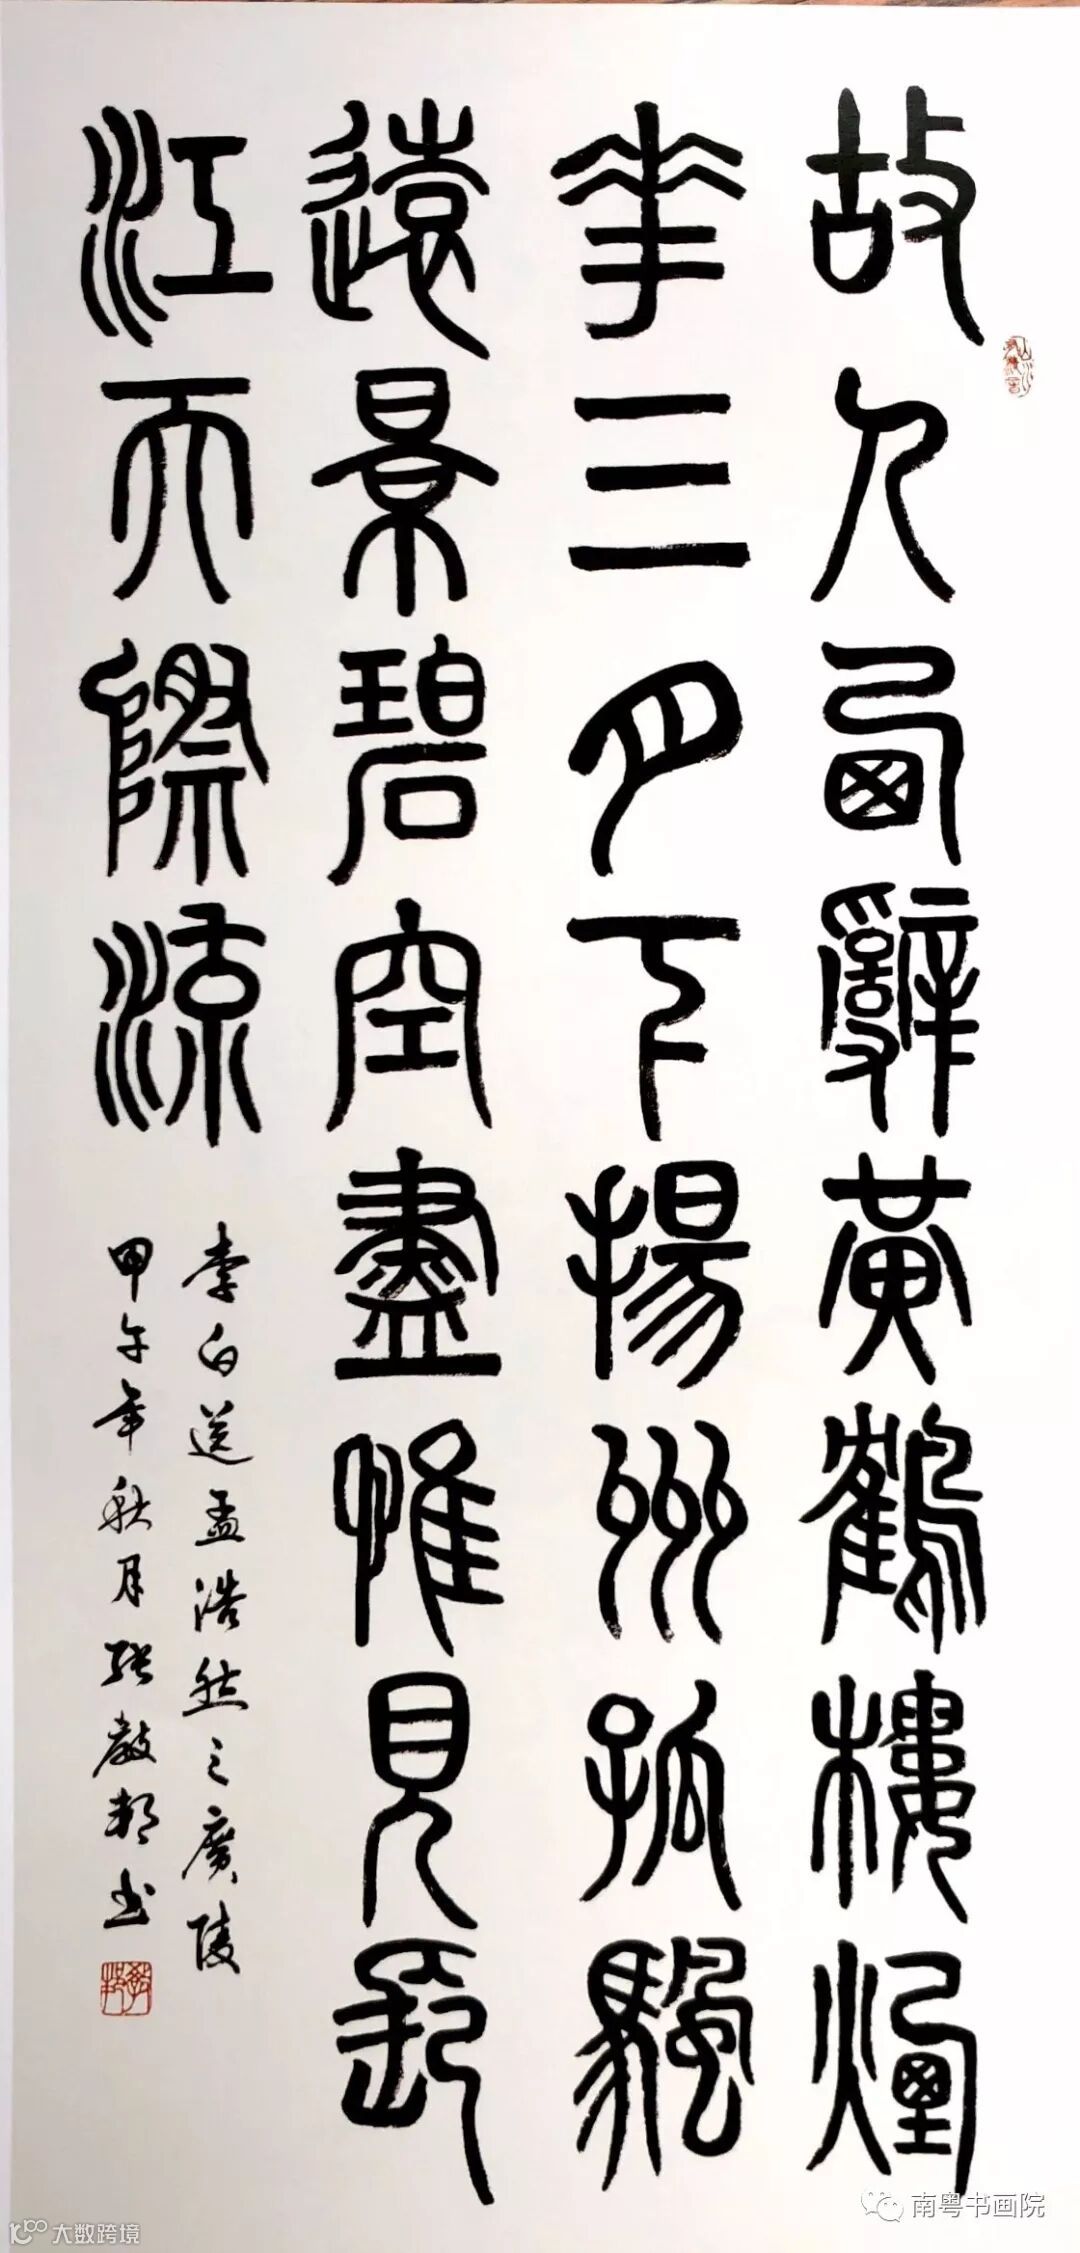 故人西辭黃鶴樓煙
華三月下揚州孤颿
遠景碧空盡惟見長
江天際流
李白送孟浩然之廣陵
甲午年秋月張教邦书
南粤书画院
大数跨境